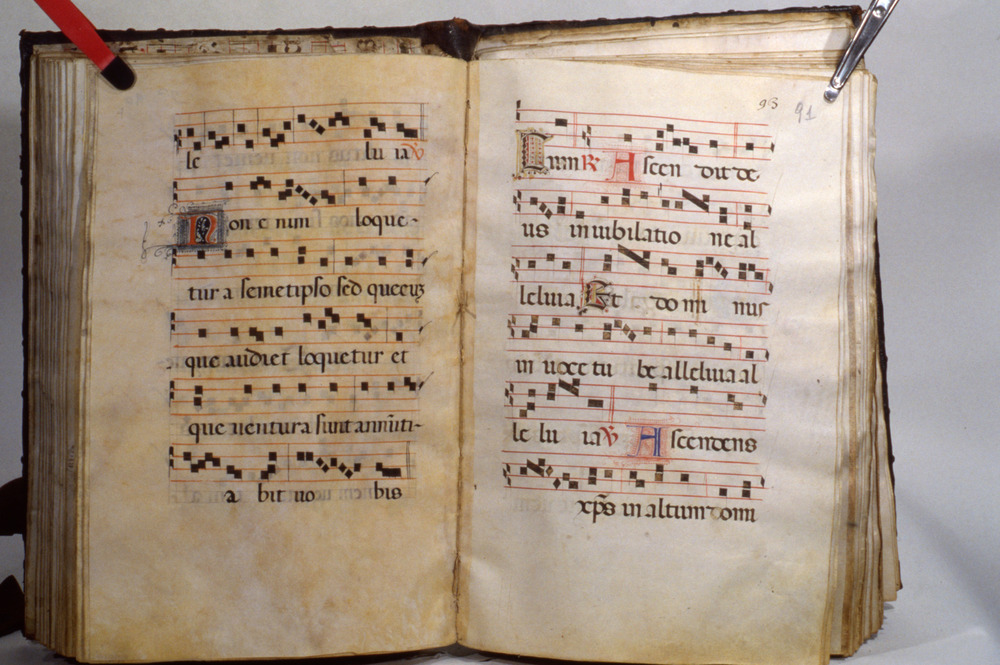 le lu ia ℣
Non enim loque-
tur a semetipso sed quecuȝ
que audiet loquetur et
que uentura sunt annūti-
a bit uo bis
93
91
Lium ℟ Ascen dit de
us in iubilatio ne al
leluia Et do mi nus
in uoce tu be alleluia al
le lu ia ℣ Ascendens
xp̄s in altum domi